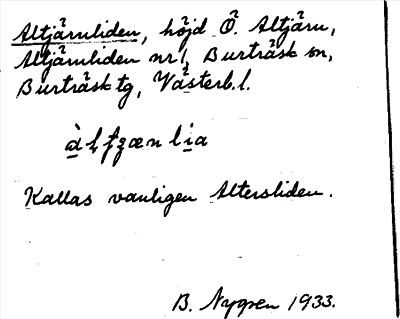 Altjärnliden, höjd Ö. Altjärn,
Altjärnliden nr 1, Burträsk sn,
Burträsk tg, Västerb.l.
Kallas vanligen Altersliden.
B. Nygren 1933.